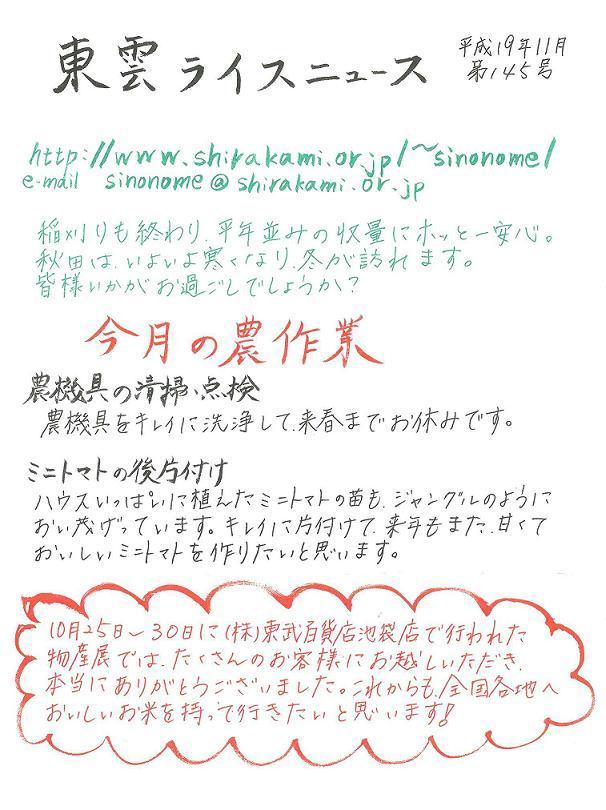 東雲ライスニュース
平成19年11月
第145号
http://www.shirakami.or.jp/~sinonome/
e-mail sinonome@shirakami.or.jp
稲刈りも終わり、平年並みの収量にホッと一安心。
秋田は、いよいよ寒くなり、冬が訪れます。
皆様いかがお過ごしでしょうか？
今月の農作業
農機具の清掃、点検
農機具をキレイに洗浄して、来春までお休みです。
ミニトマトの後片付け
ハウスいっぱいに植えたミニトマトの苗も、ジャングルのように
おい茂げっています。キレイに片付けて、来年もまた、甘くて
おいしいミニトマトを作りたいと思います。
10月25日～30日に(株)東武百貨店池袋店で行われた
物産展では、たくさんのお客様にお越しいただき、
本当にありがとうございました。これからも、全国各地へ
おいしいお米を持って行きたいと思います!